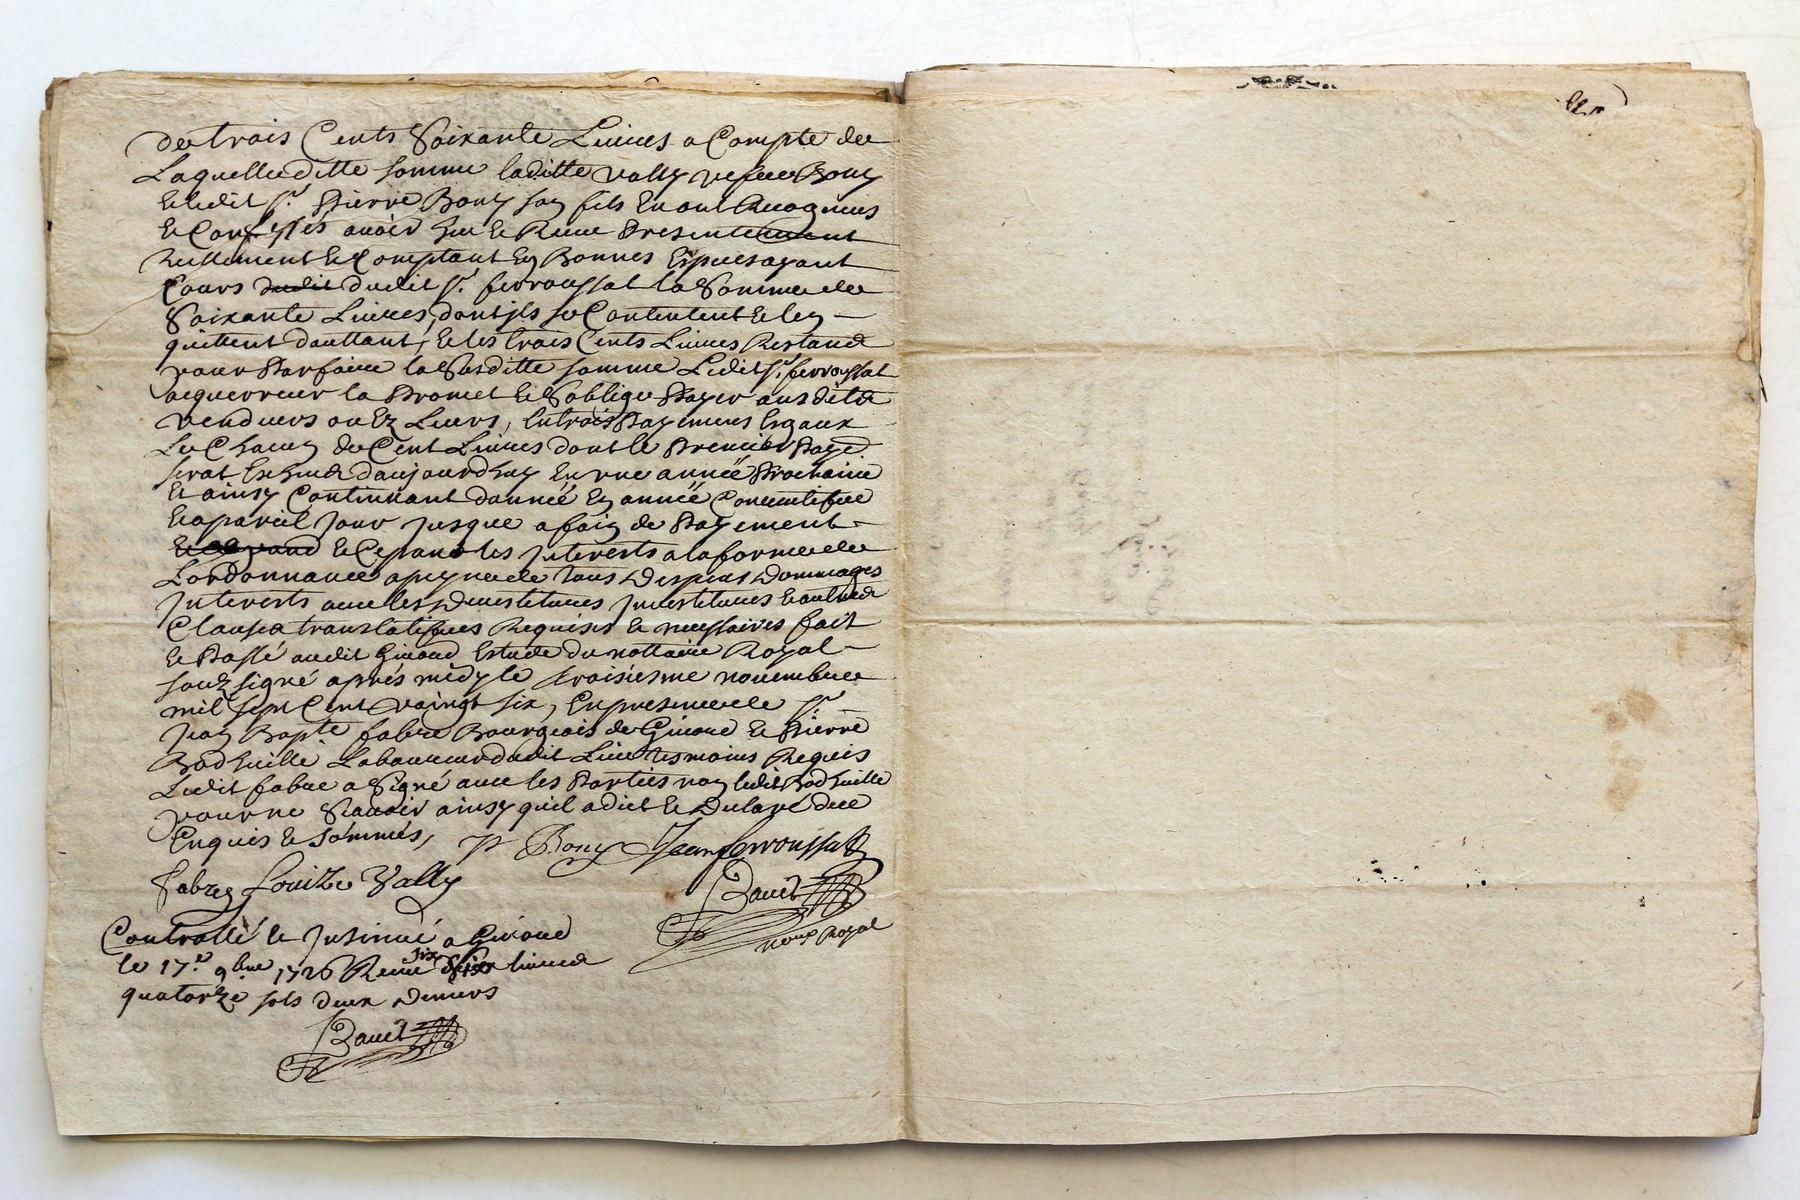 de trois Cents Soixante Livres a Compte de
Laquelle ditte somme laditte vally veufve Bony
Et ledit sr. Pierre Bony son fils En ont Recognus
Et Confessés avoir heu et Receu presentement
Reellement Et Comptant En Bonnes Especes ayant
Cours dudit sr. ferroussat la Somme de
Soixante Livres, dont jls se Contentent Et len
quittent dauttant, Et les trois Cents Livres Restand
pour Parfaire la Susditte somme Ledit sr. ferroussat
acquerreur la Promet Et Soblige Payer ausdits
vendeurs ou Ez Leurs, En trois Payements Esgaux
De Chacun de Cent Livres dont le Premier Paye
serat Escheu daujourdhuy En une année Prochaine
Et ainsy Continuant dannée En année Consecutifve
Et a pareil jour jusque a fain de Payement
Et Cepand les jnterests a la forme de
Lordonnance a peyne de tous Despens Dommages
jnterests avec les Devestitures jnvestitures Et autres
Clauses translatifves Requises Et necessaires fait
Et Passé audit Girond Estude du nottaire Royal
souz signé aprés midy le troisiesme novembre
mil sept Cent vaingt six, En presence de sr
Jean Bapte fabre Bourgeois de Girond Et Pierre
Laboureur dudit Lieu tesmoins Requis
Ledit fabre a Signé avec les Parties non ledit
pour ne Scavoir ainsy quil a dict Et Declaré de ce
Enquis Et sommés,
P Bony Jean ferroussat
fabre Louize Vally
Bauet
nore Royal
Controllé Et jnsinué a Girond
le 17.e 9bre 1726 Receu six livres
quatorze sols deux deniers
Bauet